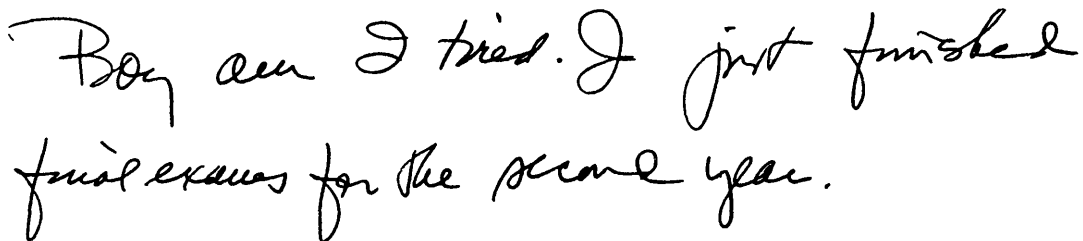 Boy am I tired. I just finished
final exams for the second year.